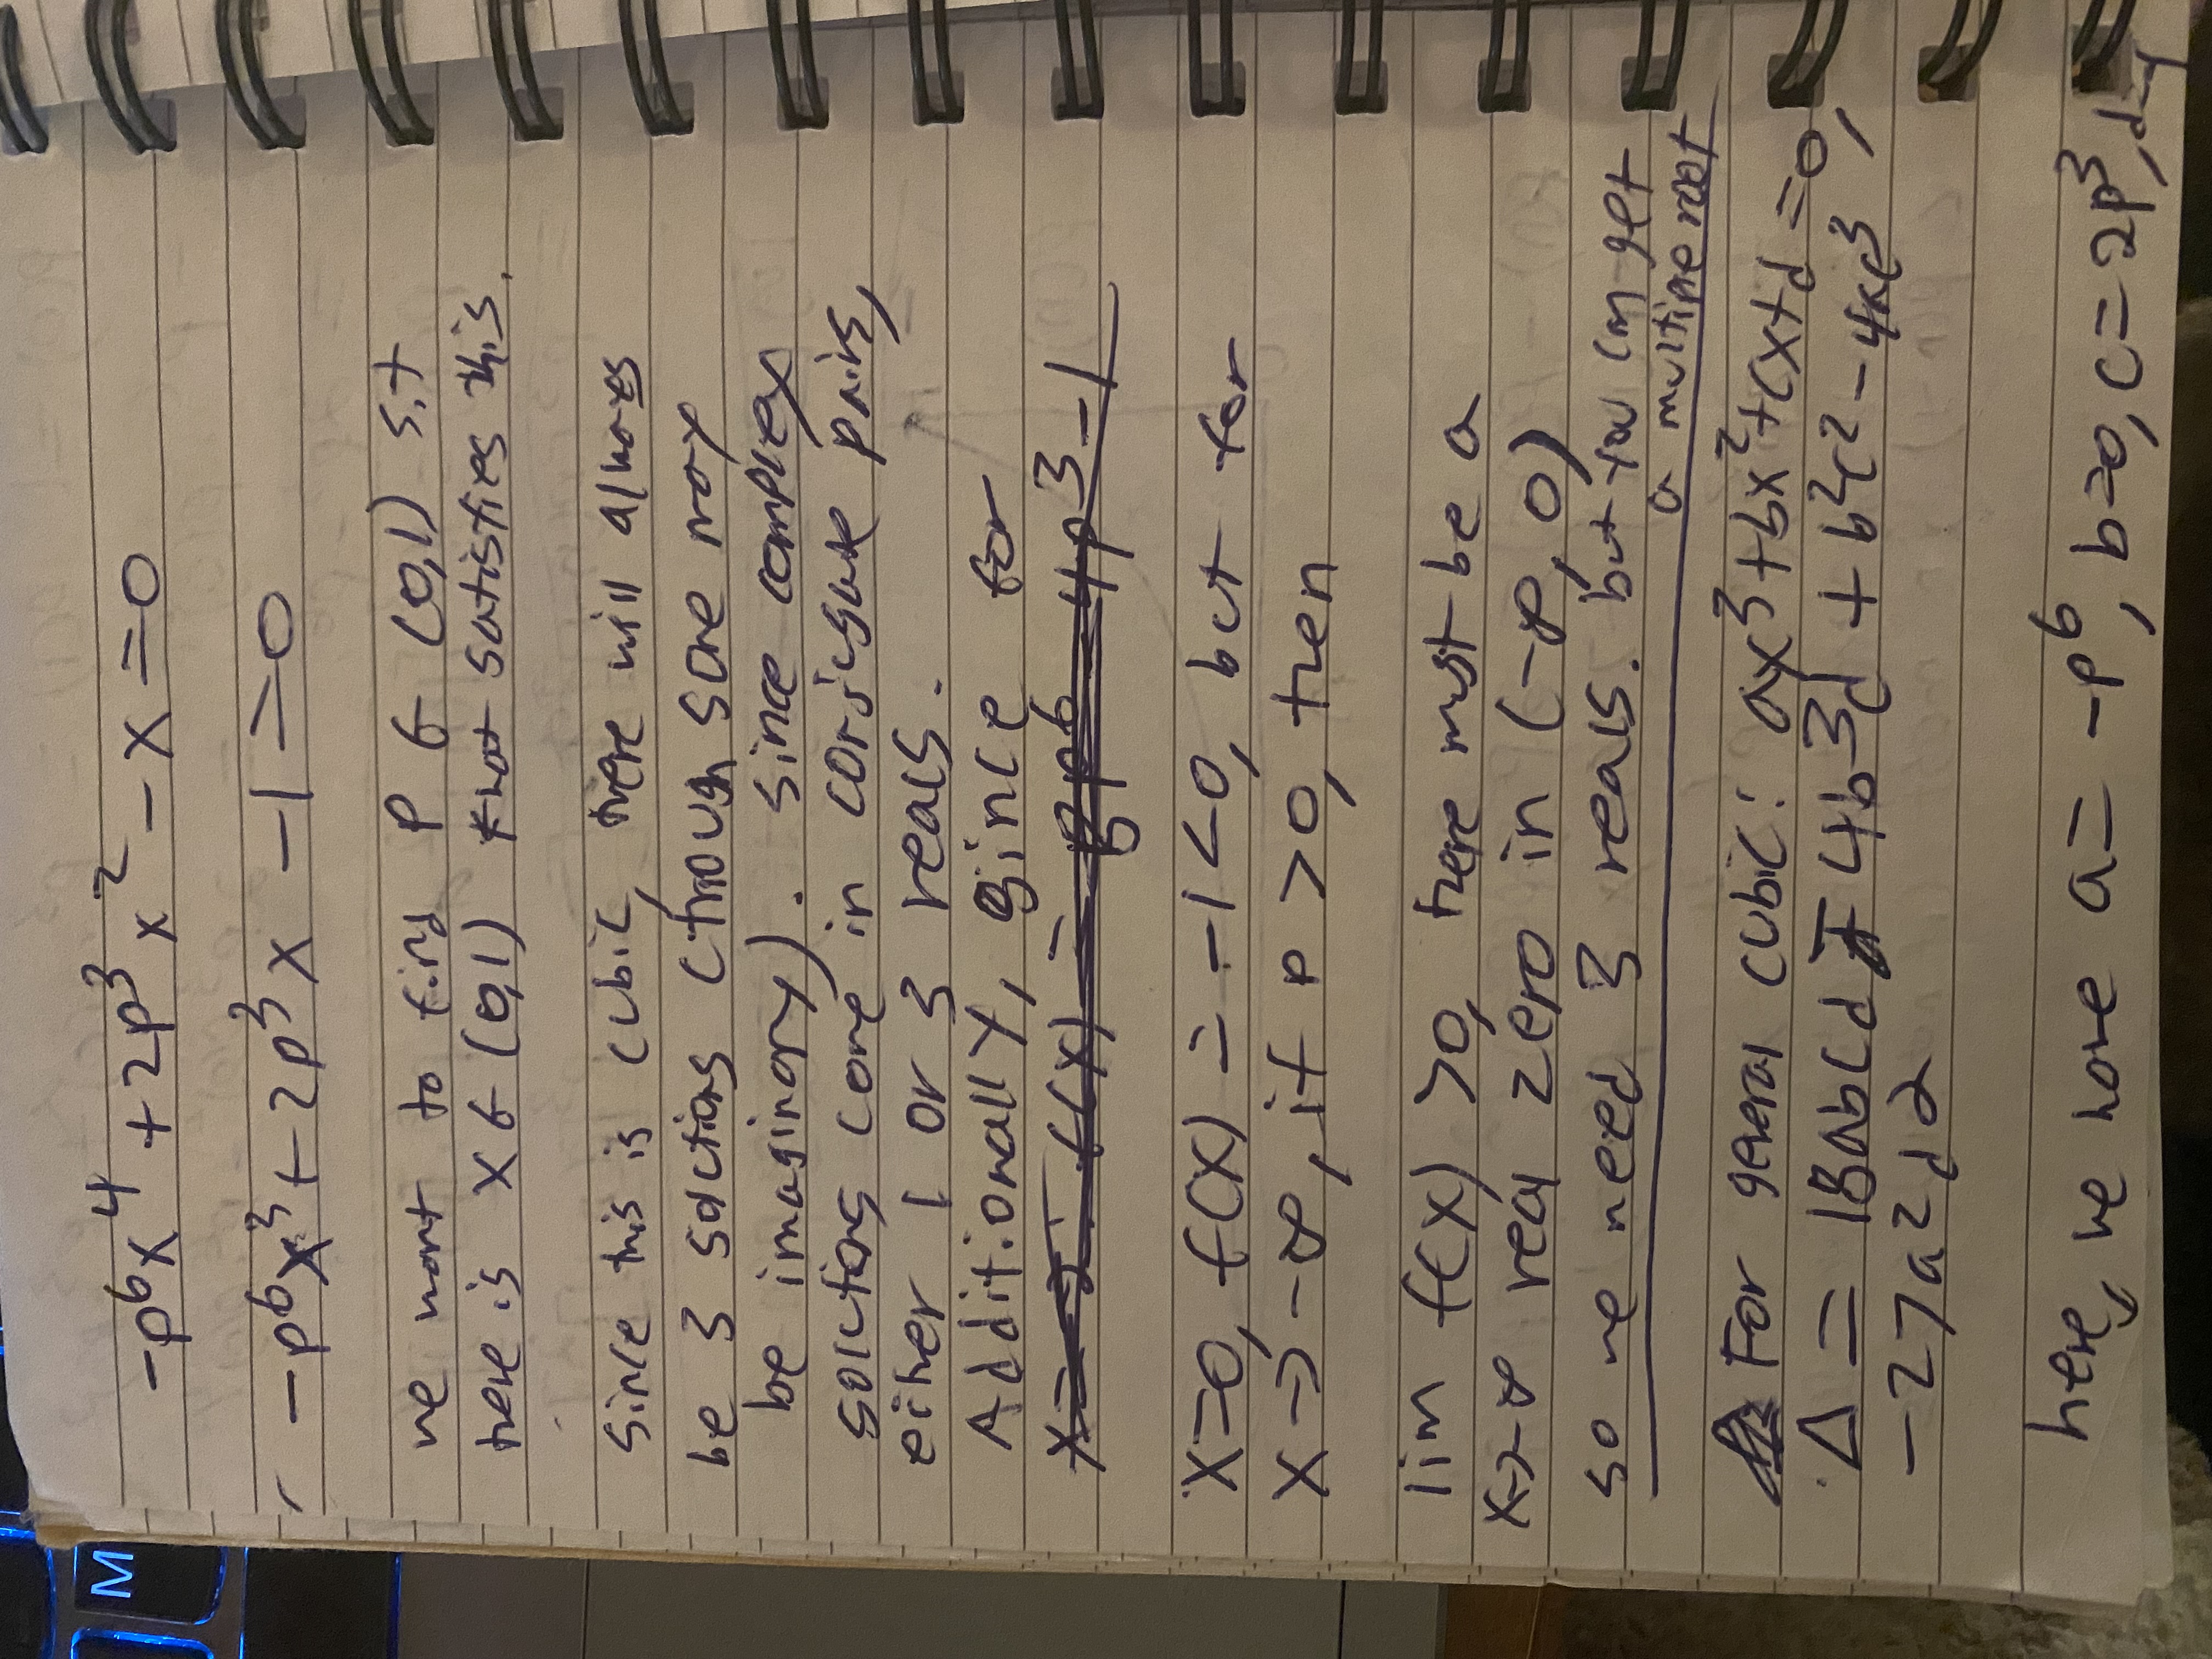 M
-p⁶x⁴ + 2p³x² - x = 0
-p⁶x³ + 2p³x - 1 = 0
we want to find p ∈ (0,1) s.t
there is x ∈ (0,1) that satisfies this.
since this is cubic, there will always
be 3 solutions (though some may
be imaginary). Since complex
solutions come in conjugate pairs,
either 1 or 3 reals.
Additionally, since for
x=-2: f(x) = 8p⁶ - 4p³ - 1
x=0, f(x) = -1 < 0, but for
x → -∞, if p > 0, then
lim f(x) > 0, there must be a
x→-∞ real zero in (-∞, 0)
so we need 3 reals. but you can get
a multiple root
For general cubic: ax³+bx²+cx+d = 0,
Δ = 18abcd - 4b³d + b²c² - 4ac³
-27a²d²
here, we have a = -p⁶, b=0, c = 2p³, d=-1